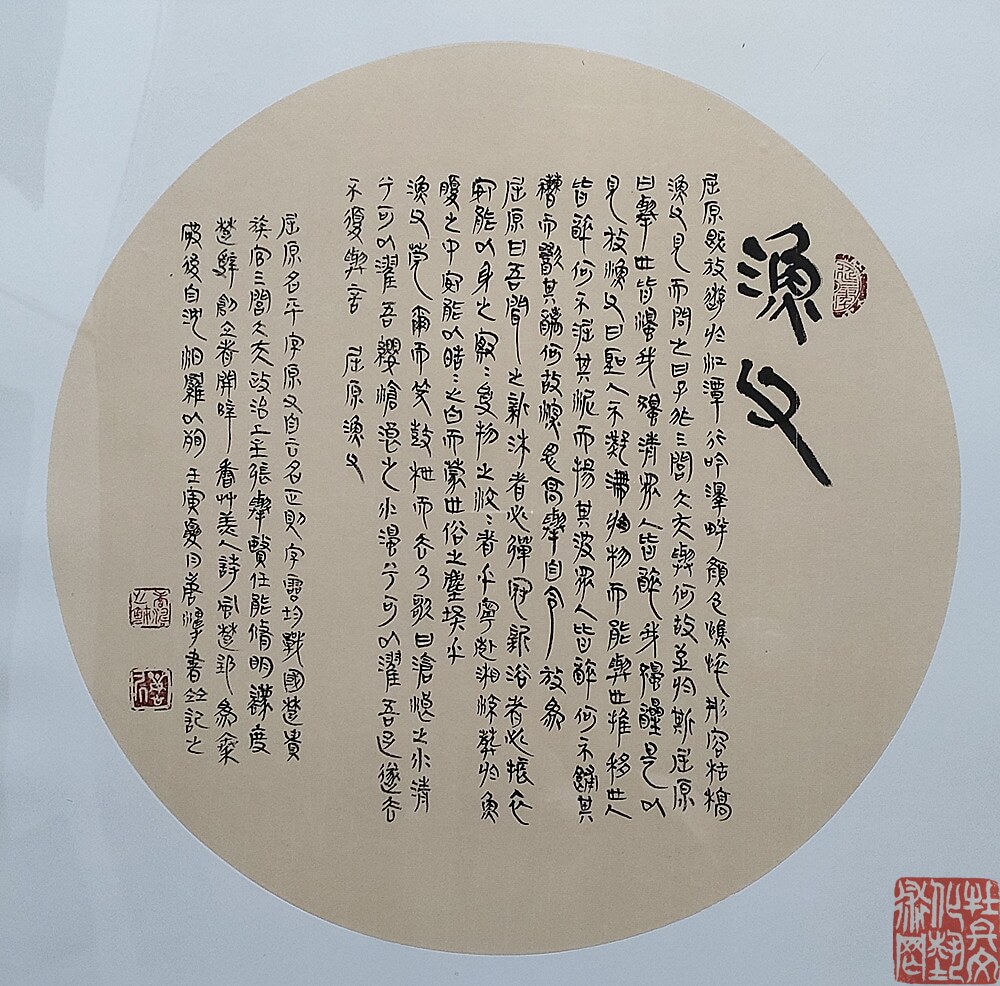 漁父
屈原既放遊於江潭行吟澤畔顏色憔悴形容枯槁
漁父見而問之曰子非三閭大夫與何故至於斯屈原
曰舉世皆濁我獨清眾人皆醉我獨醒是以
見放漁父曰聖人不凝滯於物而能與世推移世人
皆濁何不淈其泥而揚其波眾人皆醉何不餔其
糟而歠其醨何故深思高舉自令放為
屈原曰吾聞之新沐者必彈冠新浴者必振衣
安能以身之察〻受物之汶〻者乎寧赴湘流葬於魚
腹之中安能以皓〻之白而蒙世俗之塵埃乎
漁父莞爾而笑鼓枻而去乃歌曰滄浪之水清
兮可以濯吾纓滄浪之水濁兮可以濯吾足遂去
不復與言 屈原漁父
屈原名平字原又自云名正則字靈均戰國楚貴
族官三閭大夫政治主張舉賢任能脩明灋度
楚辭創立者開辟香艸美人詩風楚郢為秦
破後自沈汨羅以殉 壬寅夏月 書竝記之
文化藝術网